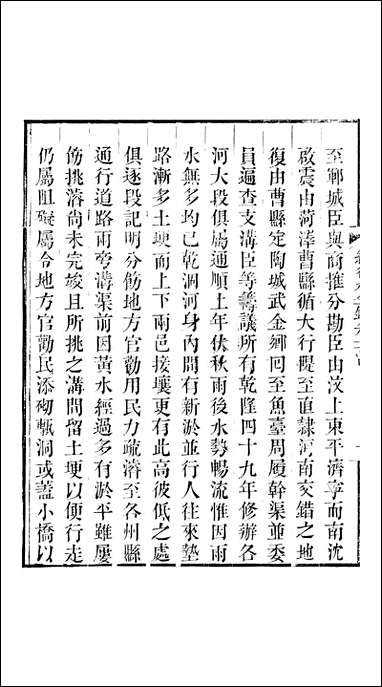 至鄆城臣與商推分勘臣由汶上東平濟寧而南沈
啟震由菏澤曹縣循大行隄至直隸河南交錯之地
復由曹縣定陶城武金鄉回至魚臺周履幹渠並委
員遍查支溝臣等籌議所有乾隆四十九年修辦各
河大段俱屬通順上年伏秋雨後水勢暢流惟因雨
水無多均已乾涸河身內間有新淤並行人往來墊
路漸多土埂而上下兩邑接壤更有此高彼低之處
俱逐段記明分飭地方官勸用民力疏濬至各州縣
通行道路兩旁溝渠前因黃水經過多有淤平雖屢
飭挑濬尚未完竣且所挑之溝間留土埂以便行走
仍屬阻礙屬令地方官勸民添砌甎洞或蓋小橋以